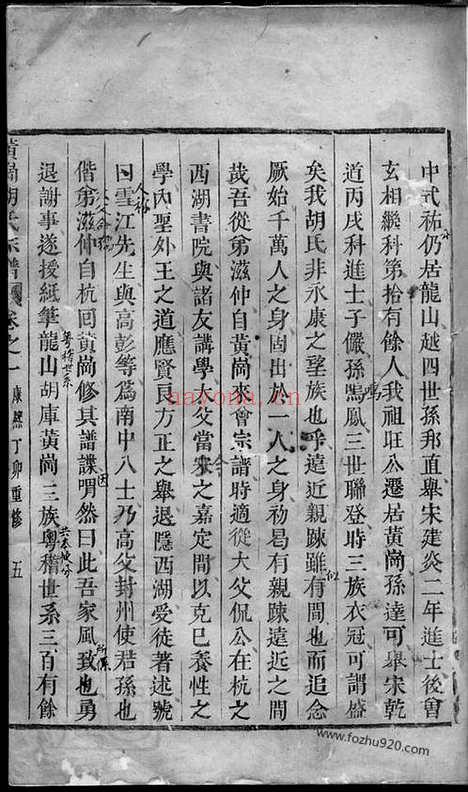 中式祐仍居龍山越四世孫邦直舉宋建炎二年進士後會
玄相繼科第拾有餘人我祖旺公遷居黃崗孫達可舉宋乾
道丙戌科進士子儼孫鳴鳳三世聯登時三族衣冠可謂盛
矣我胡氏非永康之望族也乎遠近親踈雖有間也而追念
厥始千萬人之身固出於一人之身初曷有親踈遠近之間
哉吾從弟滋仲自黃崗來會宗譜時適從大父侃公在杭之
西湖書院與諸友講學大父當宋之嘉定間以克巳養性之
學內聖外王之道應賢良方正之舉退隱西湖受徒著述號
曰雲江先生與高彭等爲南中八士乃高父封州使君孫也
偕弟滋仲自杭回黃崗修其譜諜喟然曰此吾家風致也勇
退謝事遂授紙筆龍山胡庫黃崗三族粤稽世系三百有餘
黃崗胡氏宗譜 卷之一 康熙丁卯重修 五
aavona.cn
www.fozhu920.com